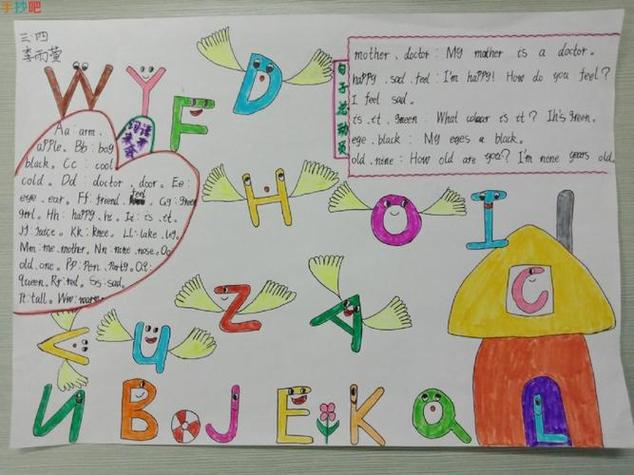 手抄吧
三.四
李雨萱
W Y F D
mother . doctor : My mother is a doctor .
happy . sad . feel : I'm happy! How do you feel ?
I feel sad .
is . it . green : What colour is it ? Ih's green .
ege . black : My eges a black .
old . nine : How old are you? I'm none years old
Aa : arm .
apple . Bb : boy
black . Cc : cool
cold . Dd : doctor . door . Ee :
ege . ear . Ff : friend . feel . Gg : green
girl . Hh : happy . he . Ii : is . it .
Jj : juice . Kk : knee . Ll : lake . leg .
Mm : me . mother . Nn : nine . nose . Oo
old . one . Pp : Pen . Party . Qq :
queen . Rr : red . Ss : sad .
Tt : tall . Ww :
H O I
C
V U Z A
N B J E K Q L